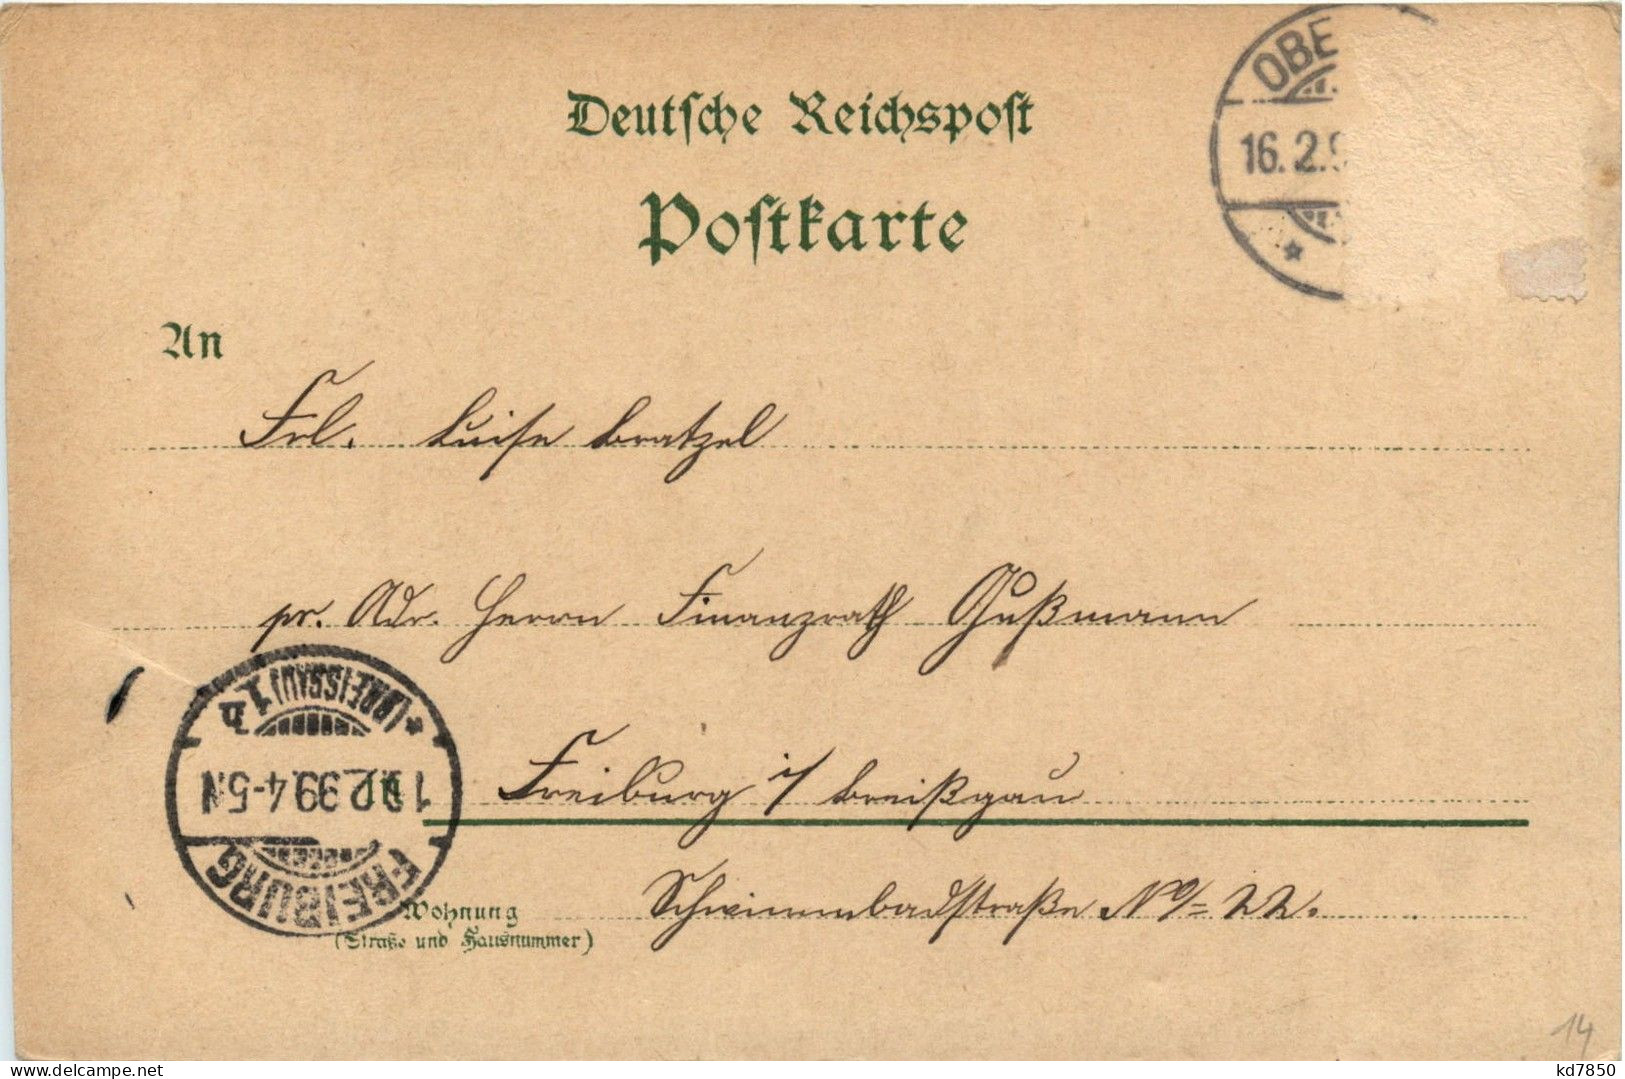 OBE
16.2.9
Deutsche Reichspost
Postkarte
An
Frl. Luise Bratzel
pr. Adr. Herrn Finanzrath Gußmann
in
Freiburg i/ Breißgau
Schwimmbadstraße No 22.
Wohnung
(Straße und Hausnummer)
FREIBURG
2.99.4-5N
* (BREISGAU) 1 h
14
kd7850